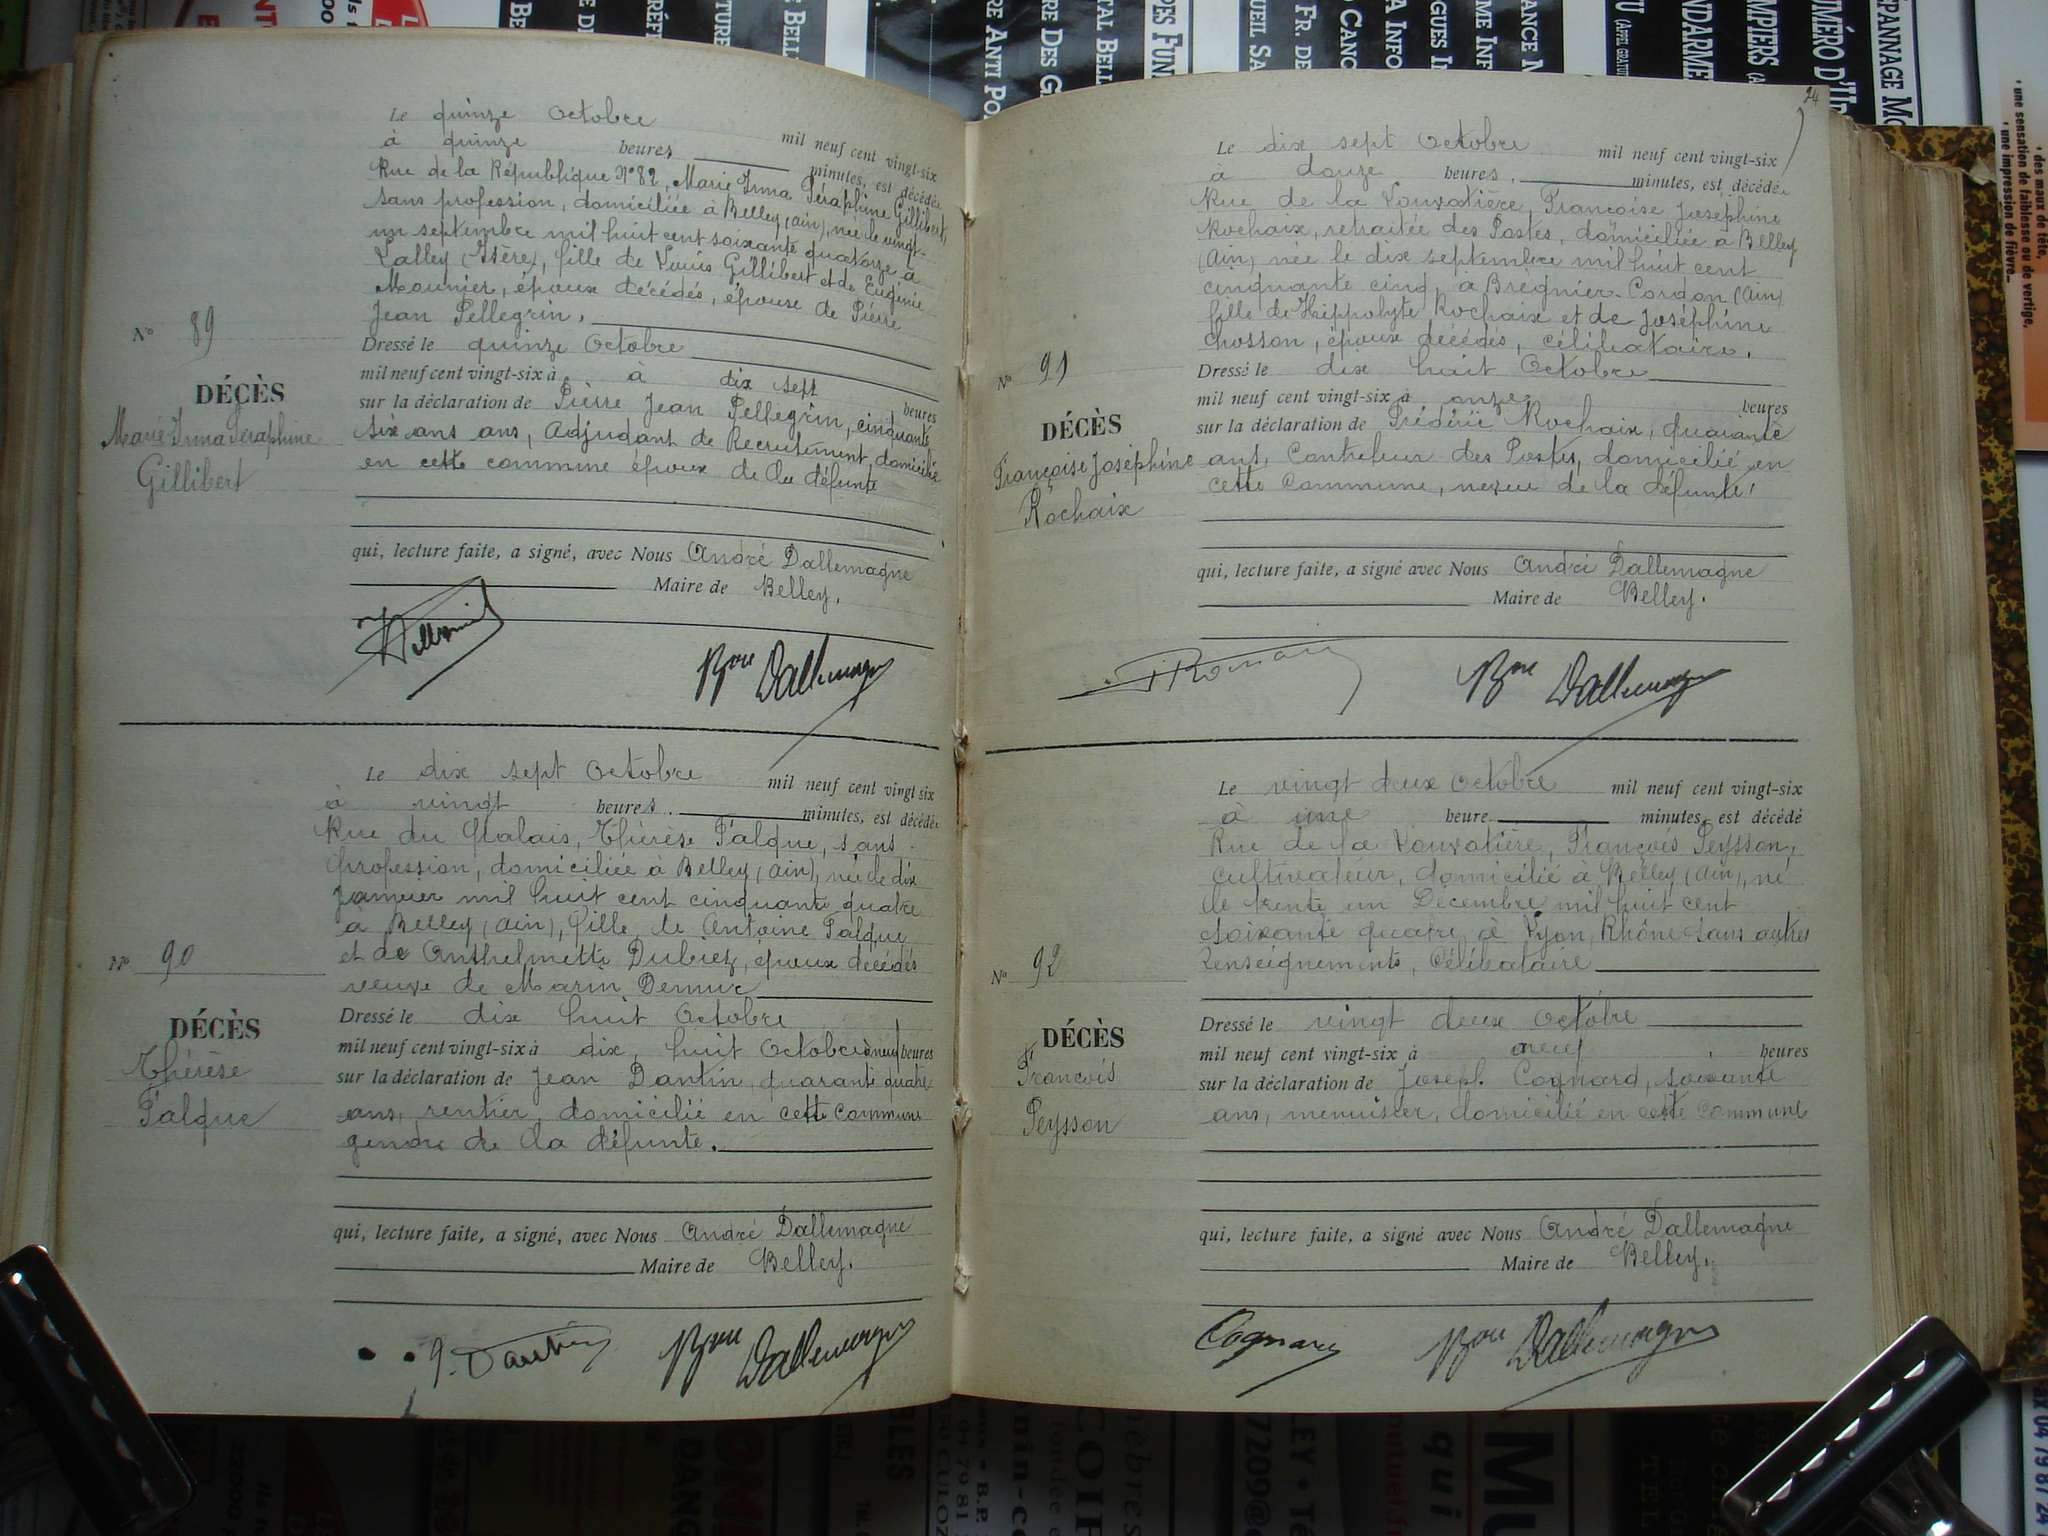 Le quinze Octobre mil neuf cent vingt-six
à quinze heures minutes, est décédée
Rue de la République N° 82, Marie Irma Séraphine Gillibert,
sans profession, domiciliée à Belley (Ain), née le vingt-
un septembre mil huit cent soixante quatorze à
Lalley (Isère), fille de Gillibert et de Eugénie
Mounier, époux décédés, épouse de Pierre
Jean Pellegrin.
N° 89
DÉCÈS
Marie Irma Séraphine
Gillibert
Dressé le quinze Octobre
mil neuf cent vingt-six à à dix sept heures
sur la déclaration de Pierre Jean Pellegrin, cinquante
six ans ans, Adjudant de Recrutement, domicilié
en cette commune époux de la défunte
qui, lecture faite, a signé, avec Nous André Dallemagne
Maire de Belley.
Bon Dallemagne
Le dix sept Octobre mil neuf cent vingt six
à vingt heures. minutes, est décédée
Rue du Palais, Thérèse Falque, sans
profession, domiciliée à Belley (Ain), née le dix
Janvier mil huit cent cinquante quatre
à Belley (Ain), fille de Antoine Falque
et de Anthelmette Dubiez, époux décédés
veuve de Marin
N° 90
DÉCÈS
Thérèse
Falque
Dressé le dix huit Octobre
mil neuf cent vingt-six à dix huit Octobre à neuf heures
sur la déclaration de Jean Dantin, quarante quatre
ans, rentier, domicilié en cette commune
gendre de la défunte.
qui, lecture faite, a signé, avec Nous André Dallemagne
Maire de Belley.
J. Dantin Bon Dallemagne
24
Le dix sept Octobre mil neuf cent vingt-six
à douze heures. minutes, est décédée
Rue de la Françoise Joséphine
Rochaix, retraitée des Postes, domiciliée à Belley
(Ain) née le dix septembre mil huit cent
cinquante cinq, à Brégnier-Cordon (Ain)
fille de Hippolyte Rochaix et de Joséphine
Chosson, époux décédés, célibataire.
N° 91
DÉCÈS
Françoise Joséphine
Rochaix
Dressé le dix huit Octobre
mil neuf cent vingt-six à onze heures
sur la déclaration de Frédéric Rochaix, quarante
ans, Contrôleur des Postes, domicilié en
cette Commune, neveu de la défunte,
qui, lecture faite, a signé avec Nous André Dallemagne
Maire de Belley.
Bon Dallemagne
Le vingt deux Octobre mil neuf cent vingt-six
à une heure minutes, est décédé
Rue de la François Peysson,
cultivateur, domicilié à Belley (Ain), né
le trente un Décembre mil huit cent
soixante quatre à Lyon, Rhône sans autres
renseignements, Célibataire
N° 92
DÉCÈS
François
Peysson
Dressé le vingt deux Octobre
mil neuf cent vingt-six à neuf heures
sur la déclaration de Joseph Cognard, soixante
ans, menuisier, domicilié en cette Commune
qui, lecture faite, a signé avec Nous André Dallemagne
Maire de Belley.
Cognard Bon Dallemagne